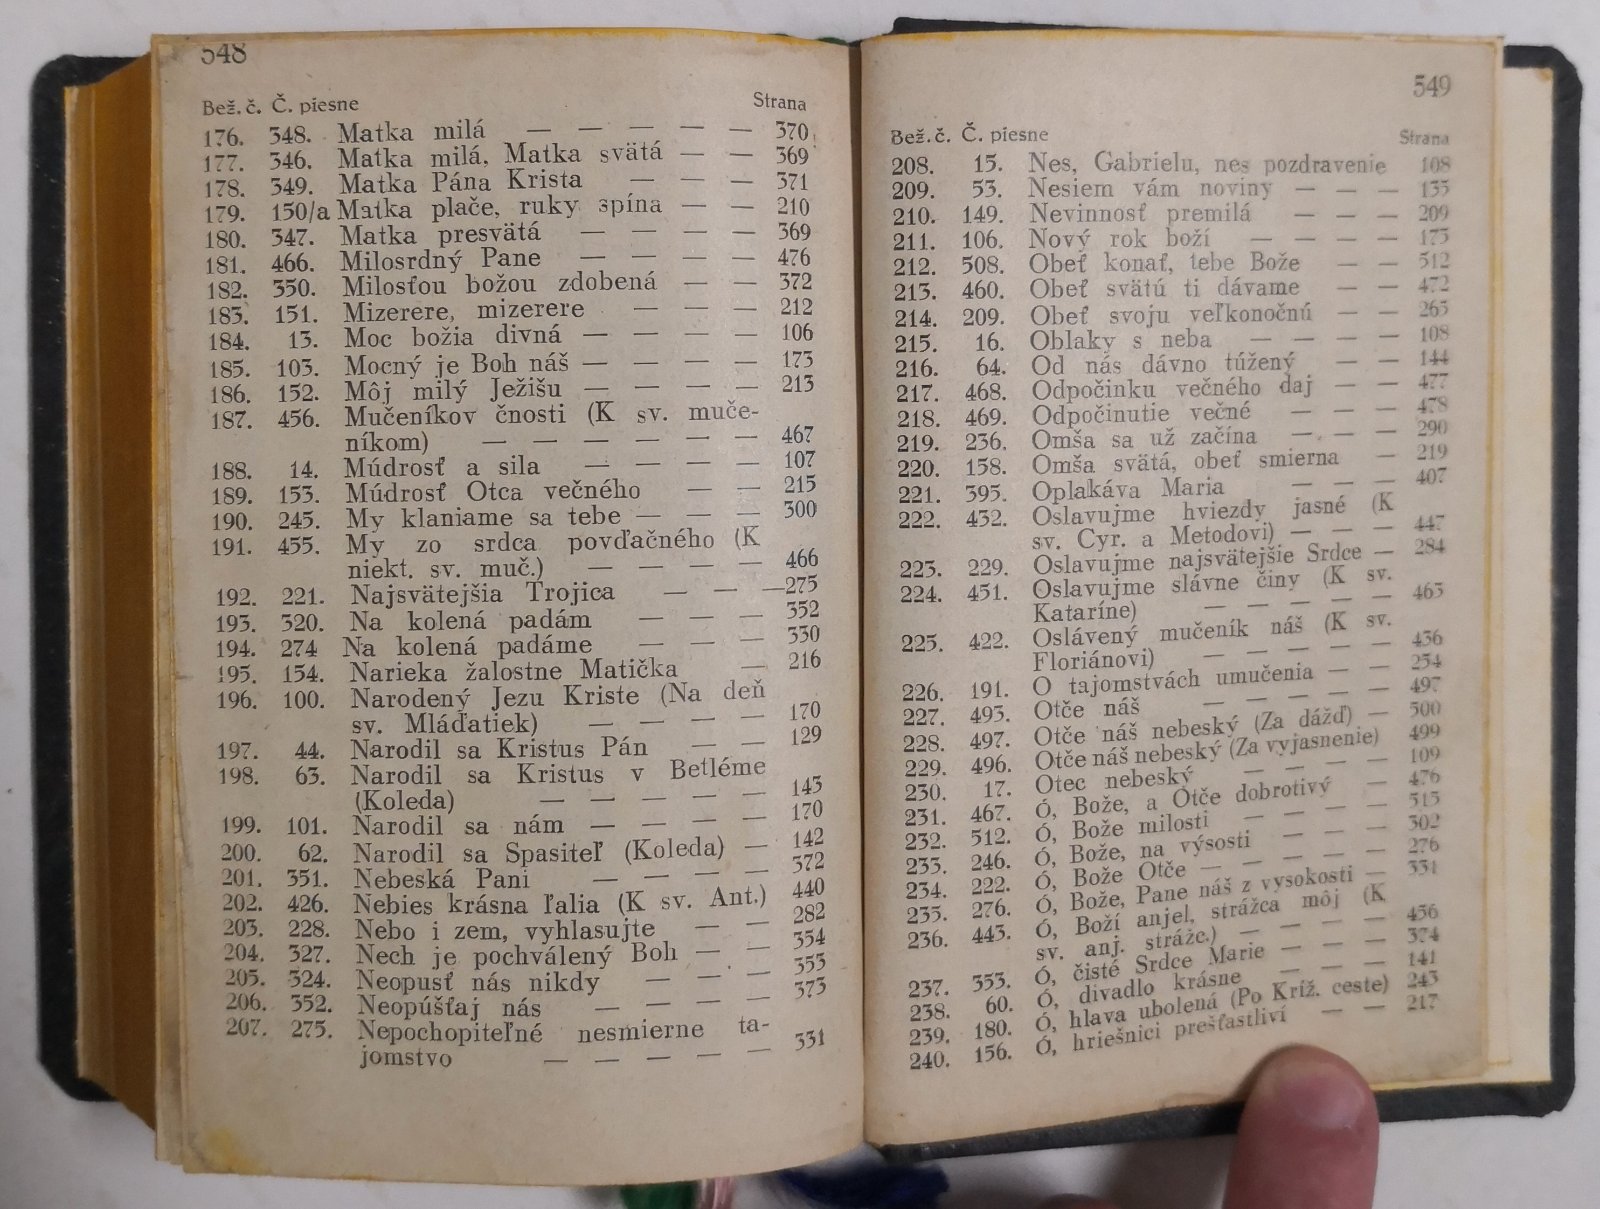 548
Bež. č. Č. piesne Strana
176. 348. Matka milá — — — — — 370
177. 346. Matka milá, Matka svätá — — 369
178. 349. Matka Pána Krista — — — 371
179. 150/a Matka plače, ruky spína — — 210
180. 347. Matka presvätá — — — — 369
181. 466. Milosrdný Pane — — — — 476
182. 350. Milosťou božou zdobená — — 372
183. 151. Mizerere, mizerere — — — 212
184. 13. Moc božia divná — — — — 106
185. 103. Mocný je Boh náš — — — — 173
186. 152. Môj milý Ježišu — — — — 213
187. 456. Mučeníkov čnosti (K sv. muče-
níkom) — — — — — — 467
188. 14. Múdrosť a sila — — — — 107
189. 153. Múdrosť Otca večného — — 215
190. 245. My klaniame sa tebe — — — 300
191. 455. My zo srdca povďačného (K
niekt. sv. muč.) — — — — 466
192. 221. Najsvätejšia Trojica — — — 275
193. 320. Na kolená padám — — — 352
194. 274 Na kolená padáme — — — 330
195. 154. Narieka žalostne Matička — 216
196. 100. Narodený Jezu Kriste (Na deň
sv. Mláďatiek) — — — — 170
197. 44. Narodil sa Kristus Pán — — 129
198. 63. Narodil sa Kristus v Betléme
(Koleda) — — — — — 143
199. 101. Narodil sa nám — — — — 170
200. 62. Narodil sa Spasiteľ (Koleda) — 142
201. 351. Nebeská Pani — — — — 372
202. 426. Nebies krásna ľalia (K sv. Ant.) 440
203. 228. Nebo i zem, vyhlasujte — — 282
204. 327. Nech je pochválený Boh — — 354
205. 324. Neopusť nás nikdy — — — 353
206. 352. Neopúšťaj nás — — — — 373
207. 275. Nepochopiteľné nesmierne ta-
jomstvo — — — — — 331
549
Bež. č. Č. piesne Strana
208. 15. Nes, Gabrielu, nes pozdravenie 108
209. 53. Nesiem vám noviny — — — 135
210. 149. Nevinnosť premilá — — — 209
211. 106. Nový rok boží — — — — 173
212. 508. Obeť konať, tebe Bože — — 512
213. 460. Obeť svätú ti dávame — — 472
214. 209. Obeť svoju veľkonočnú — — 263
215. 16. Oblaky s neba — — — — 108
216. 64. Od nás dávno túžený — — 144
217. 468. Odpočinku večného daj — — 477
218. 469. Odpočinutie večné — — — 478
219. 236. Omša sa už začína — — — 290
220. 158. Omša svätá, obeť smierna — 219
221. 395. Oplakáva Maria — — — 407
222. 432. Oslavujme hviezdy jasné (K
sv. Cyr. a Metodovi) — — — 447
223. 229. Oslavujme najsvätejšie Srdce — 284
224. 451. Oslavujme slávne činy (K sv.
Kataríne) — — — — — 463
225. 422. Oslávený mučeník náš (K sv.
Floriánovi) — — — — — 436
226. 191. O tajomstvách umučenia — — 254
227. 493. Otče náš — — — — — 497
228. 497. Otče náš nebeský (Za dážď) — 500
229. 496. Otče náš nebeský (Za vyjasnenie) 499
230. 17. Otec nebeský — — — — 109
231. 467. Ó, Bože, a Otče dobrotivý — 476
232. 512. Ó, Bože milosti — — — — 515
233. 246. Ó, Bože, na výsosti — — — 302
234. 222. Ó, Bože Otče — — — — — 276
235. 276. Ó, Bože, Pane náš z vysokosti — 331
236. 443. Ó, Boží anjel, strážca môj (K
sv. anj. stráže.) — — — — 456
237. 353. Ó, čisté Srdce Marie — — — 374
238. 60. Ó, divadlo krásne — — — 141
239. 180. Ó, hlava ubolená (Po Kríž. ceste) 243
240. 156. Ó, hriešnici prešťastliví — — 217